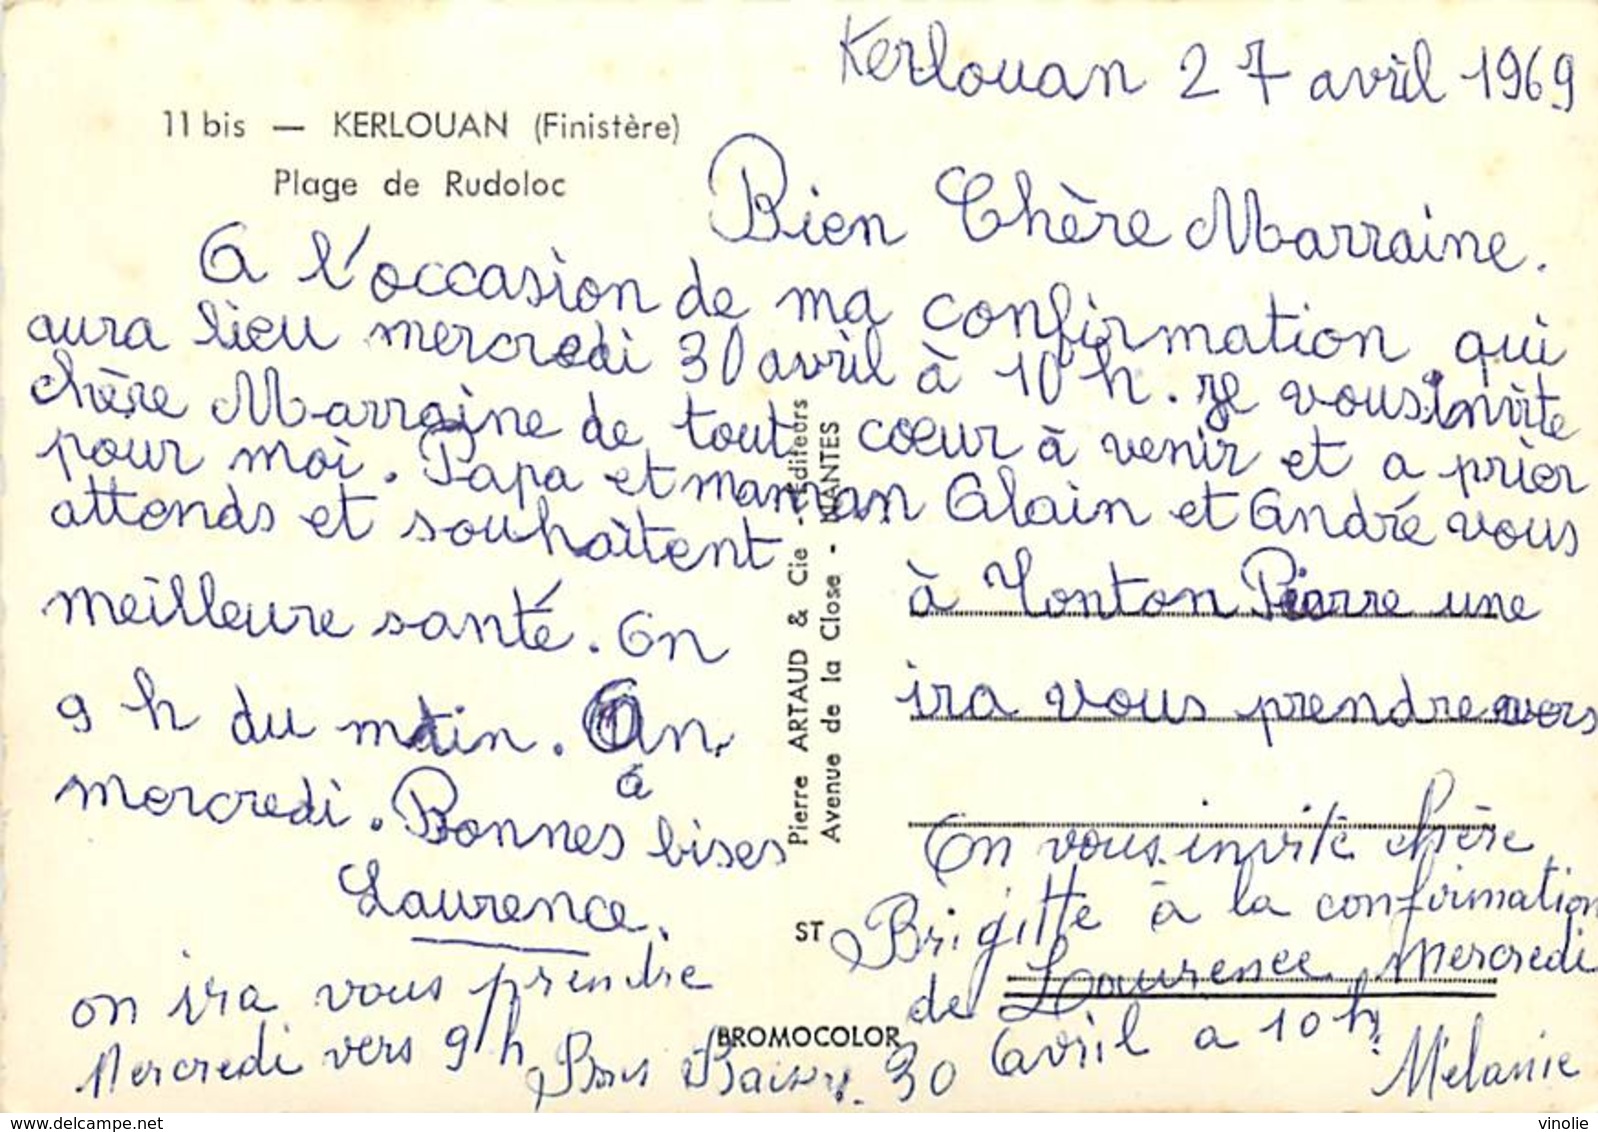 Kerlouan 27 avril 1969
11 bis — KERLOUAN (Finistère)
Plage de Rudoloc
Bien Chère Marraine.
A l'occasion de ma confirmation qui
aura lieu mercredi 30 avril à 10 h. Je vous invite
chère Marraine de tout cœur à venir et a prier
pour moi. Papa et maman Alain et André vous
attends et souhaitent à Tonton Pierre une
meilleure santé. On ira vous prendre vers
9 h du matin. On
à
mercredi. Bonnes bises
Laurence.
On vous invite chère
Brigitte à la confirmation
de Laurence Mercredi
30 avril a 10 h.
on ira vous prendre
Mercredi vers 9 h Bons Baisers.
Mélanie
Pierre ARTAUD & Cie - Editeurs
Avenue de la Close - NANTES
ST
BROMOCOLOR
www.delcampe.net
vinolie